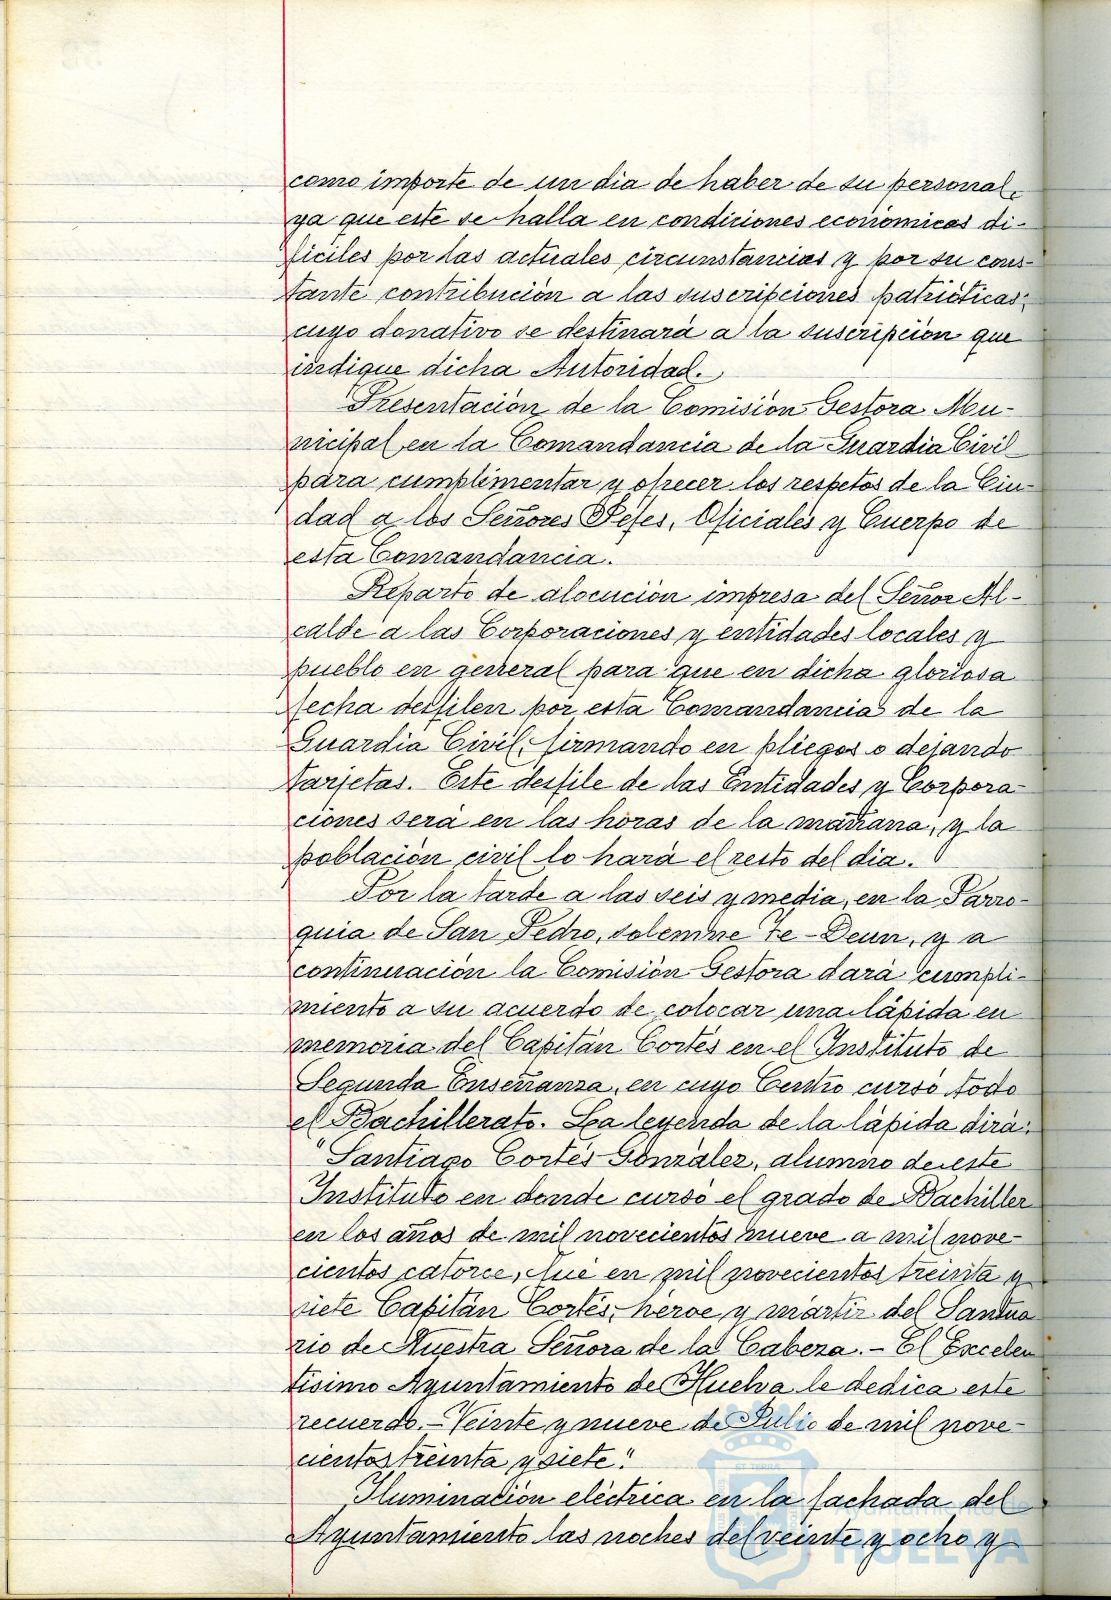 como importe de un dia de haber de su personal,
ya que este se halla en condiciones económicas di-
fíciles por las actuales circunstancias y por su cons-
tante contribución a las suscripciones patrióticas;
cuyo donativo se destinará a la suscripción que
indique dicha Autoridad.
Presentación de la Comisión Gestora Mu-
nicipal en la Comandancia de la Guardia Civil
para cumplimentar y ofrecer los respetos de la Ciu-
dad a los Señores Jefes, Oficiales y Cuerpo de
esta Comandancia.
Reparto de alocución impresa del Señor Al-
calde a las Corporaciones y entidades locales y
pueblo en general para que en dicha gloriosa
fecha desfilen por esta Comandancia de la
Guardia Civil, firmando en pliegos o dejando
tarjetas. Este desfile de las Entidades y Corpora-
ciones será en las horas de la mañana, y la
población civil lo hará el resto del dia.
Por la tarde a las seis y media, en la Parro-
quia de San Pedro, solemne Te-Deun, y a
continuación la Comisión Gestora dará cumpli-
miento a su acuerdo de colocar una lápida en
memoria del Capitán Cortés en el Instituto de
Segunda Enseñanza, en cuyo Centro cursó todo
el Bachillerato. La leyenda de la lápida dirá:
"Santiago Cortés González, alumno de este
Instituto en donde cursó el grado de Bachiller
en los años de mil novecientos nueve a mil nove-
cientos catorce, fué en mil novecientos treinta y
siete Capitán Cortés, héroe y mártir del Santua
rio de Nuestra Señora de la Cabeza.- El Excelen
tísimo Ayuntamiento de Huelva le dedica este
recuerdo.- Veinte y nueve de Julio de mil nove-
cientos treinta y siete".
Iluminación eléctrica en la fachada del
Ayuntamiento las noches del veinte y ocho y
Ayuntamiento de
HUELVA